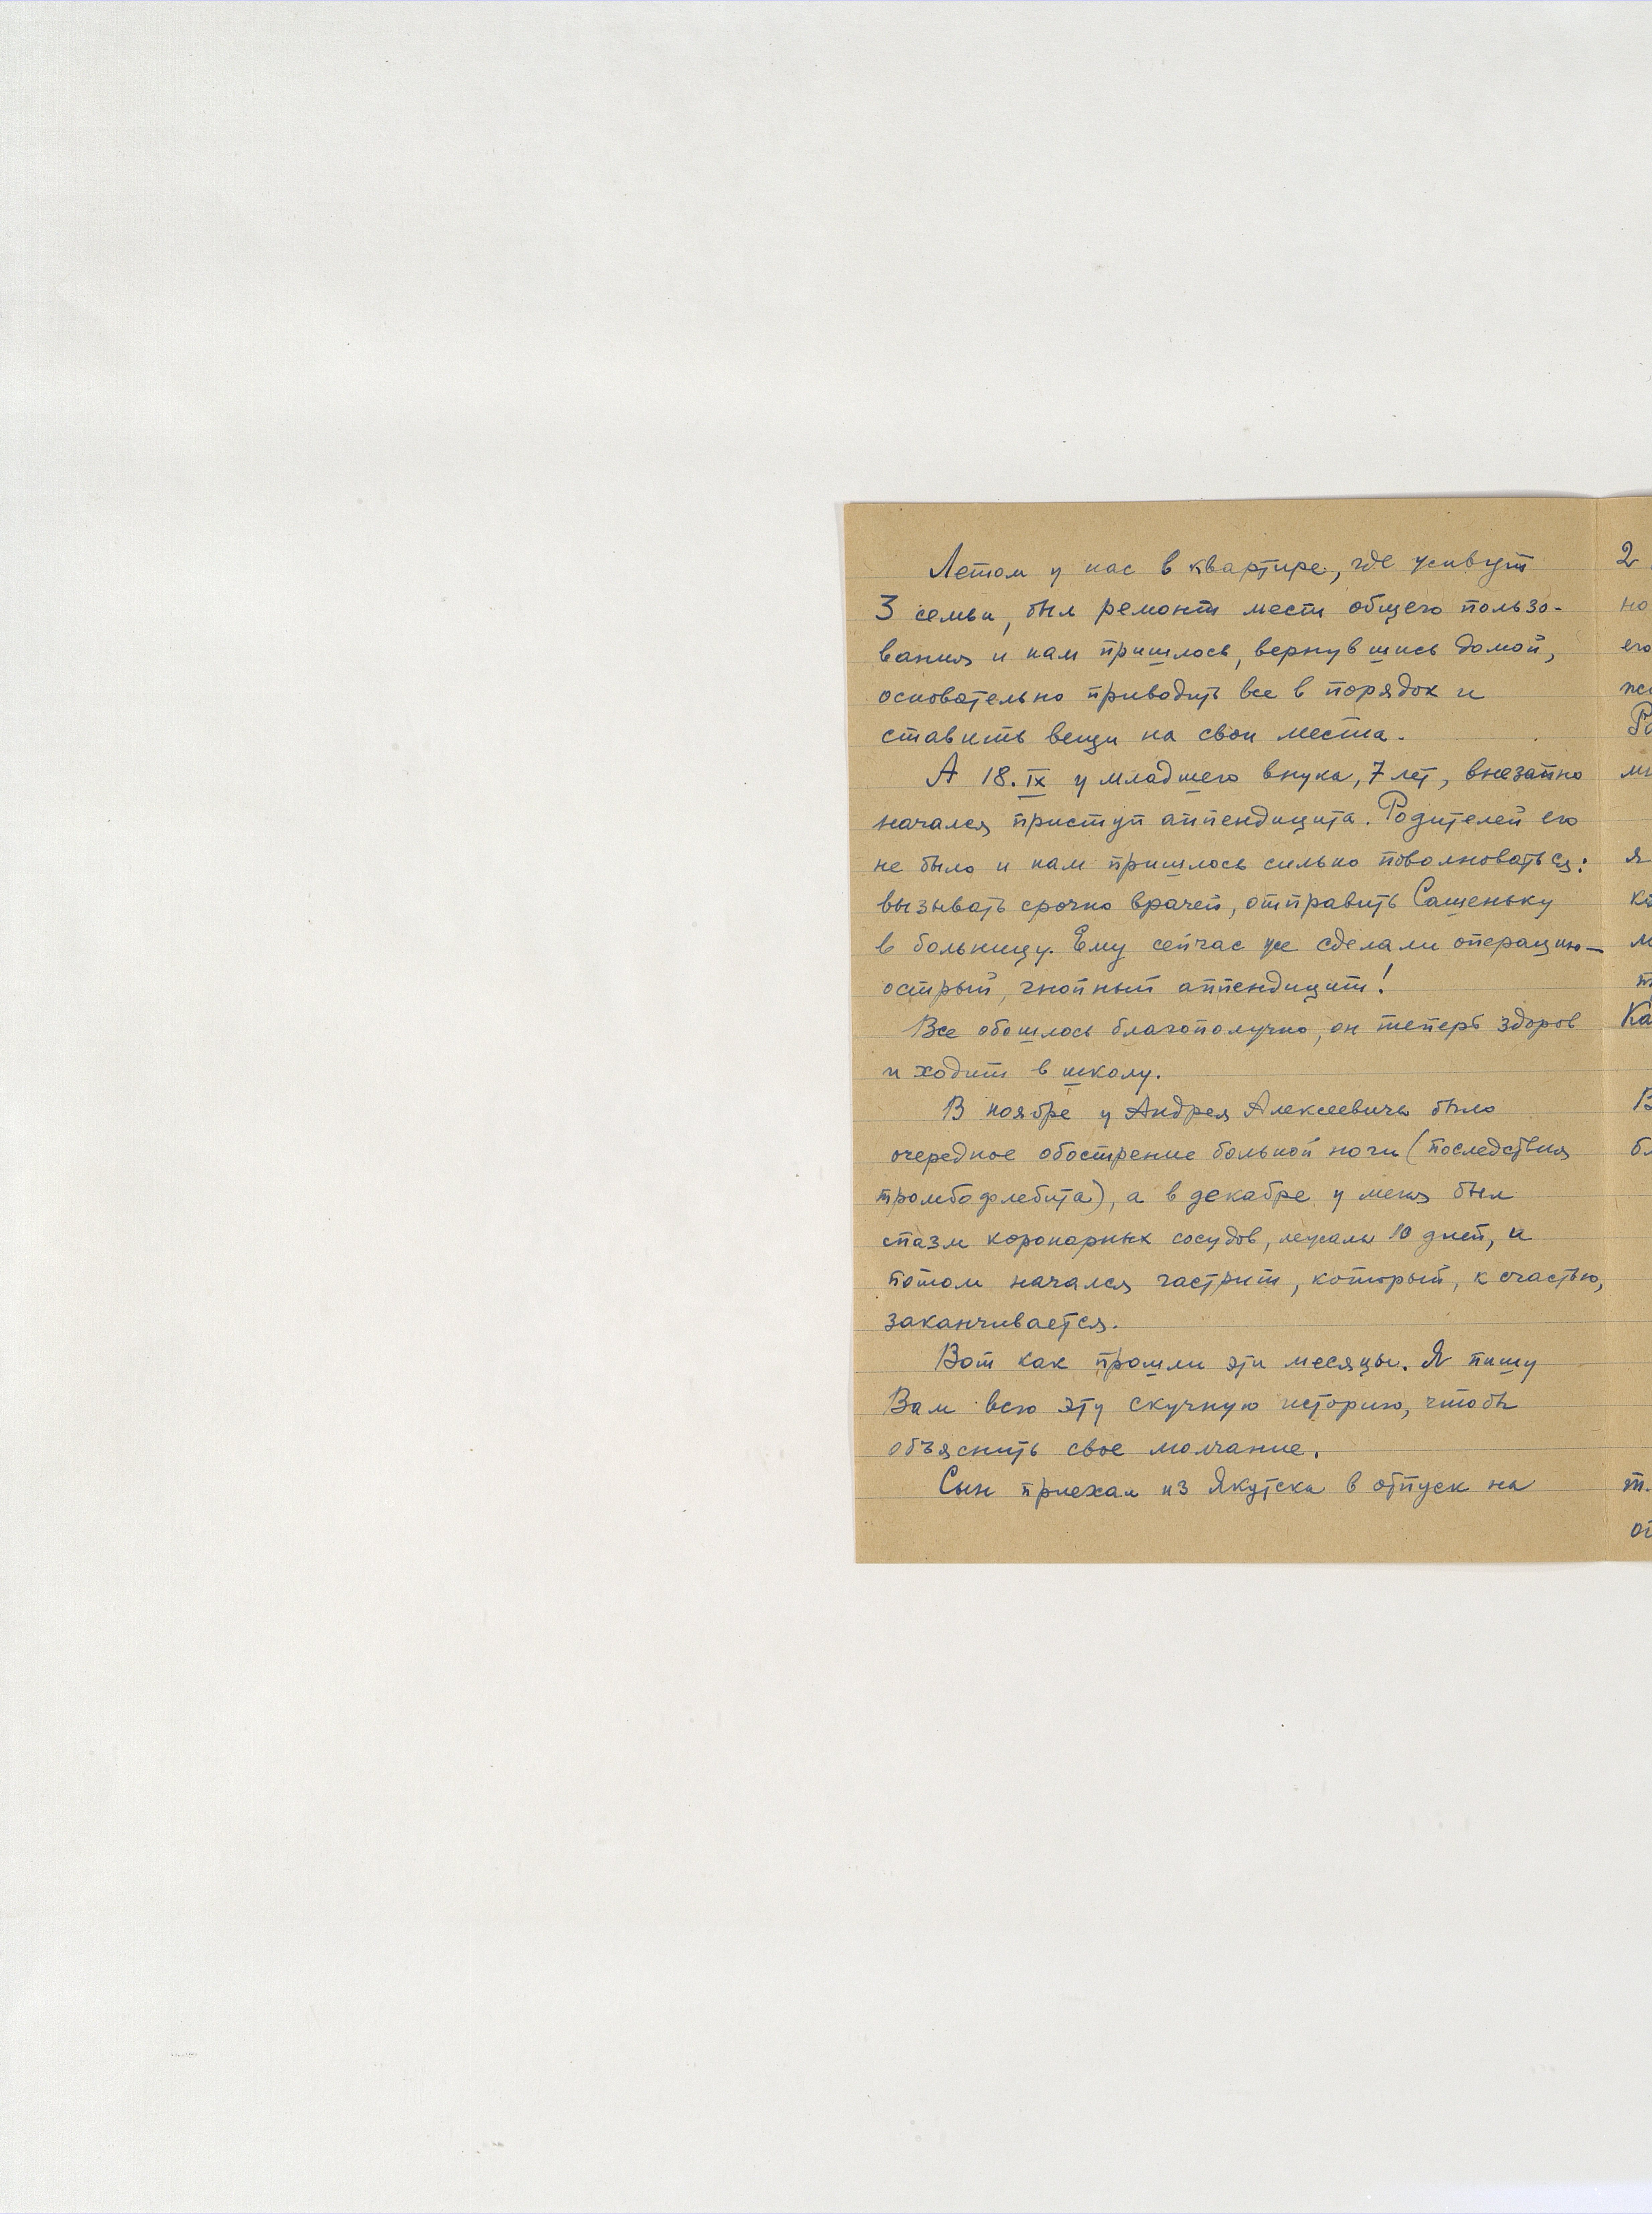 Летом у нас в квартире, где живут
3 семьи, был ремонт мест общего пользо-
вания и нам пришлось, вернувшись домой,
основательно приводить все в порядок и
ставить вещи на свои места.
А 18.IX у младшего внука, 7 лет, внезапно
начался приступ аппендицита. Родителей его
не было и нам пришлось сильно поволноваться:
вызывать срочно врачей, отправить Сашеньку
в больницу. Ему сейчас же сделали операцию—
острый, гнойный аппендицит!
Все обошлось благополучно, он теперь здоров
и ходит в школу.
В ноябре у Андрея Алексеевича было
очередное обострение больной ноги (последствия
тромбофлебита), а в декабре у меня был
спазм коронарных сосудов, лежала 10 дней, и
потом начался гастрит, который, к счастью,
заканчивается.
Вот как прошли эти месяцы. Я пишу
Вам всю эту скучную историю, чтобы
объяснить свое молчание.
Сын приехал из Якутска в отпуск на
2
но
его
Ро
я
м
Ка
В
т.